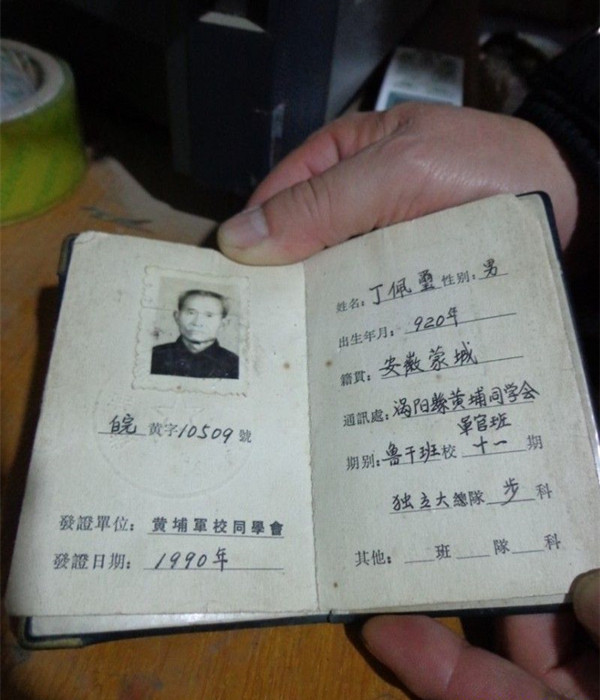 皖黄字10509號
發證單位：黄埔軍校同學會
發證日期：1990年
姓名：丁佩璽 性別：男
出生年月：920年
籍貫：安徽蒙城
通訊處：涡阳縣黄埔同学会
軍官班
期別：魯干班校十一期
独立大總隊步科
其他：班隊科